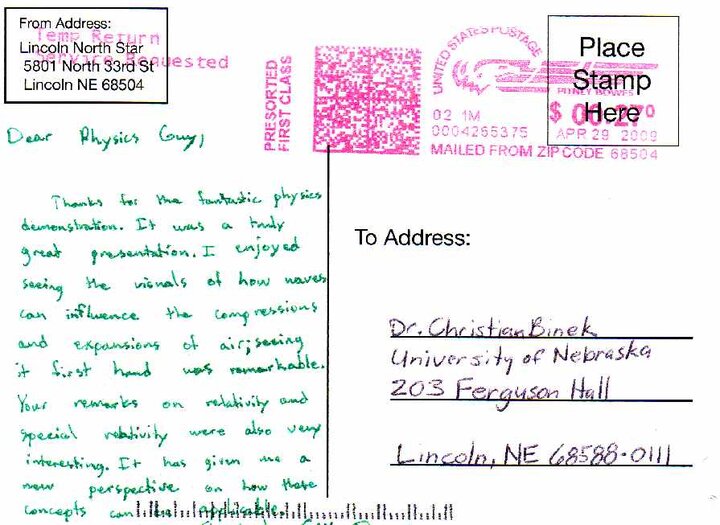 From Address:
Temp Return
Lincoln North Star
Service Requested
5801 North 33rd St
Lincoln NE 68504
PRESORTED
FIRST CLASS
UNITED STATES POSTAGE
PITNEY BOWES
02 1M
$ 00.27⁰
0004265375
APR 29 2009
MAILED FROM ZIP CODE 68504
Place
Stamp
Here
Dear Physics Guy,
Thanks for the fantastic physics
demonstration. It was a truly
great presentation. I enjoyed
seeing the visuals of how waves
can influence the compressions
and expansions of air; seeing
it first hand was remarkable.
Your remarks on relativity and
special relativity were also very
interesting. It has given me a
new perspective on how these
concepts can be applicable.
To Address:
Dr. Christian Binek
University of Nebraska
203 Ferguson Hall
Lincoln, NE 68588-0111